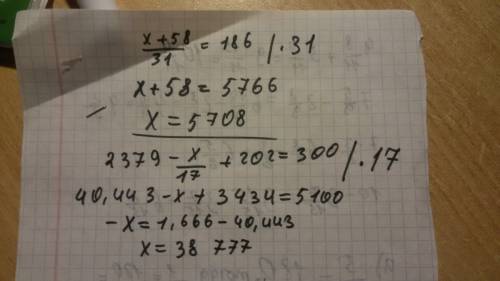 x+58/31 = 186 /.31
x+58 = 5766
x = 5708
2379 - x/17 + 202 = 300 /.17
40,443 - x + 3434 = 5100
-x = 1,666 - 40,443
x = 38 777